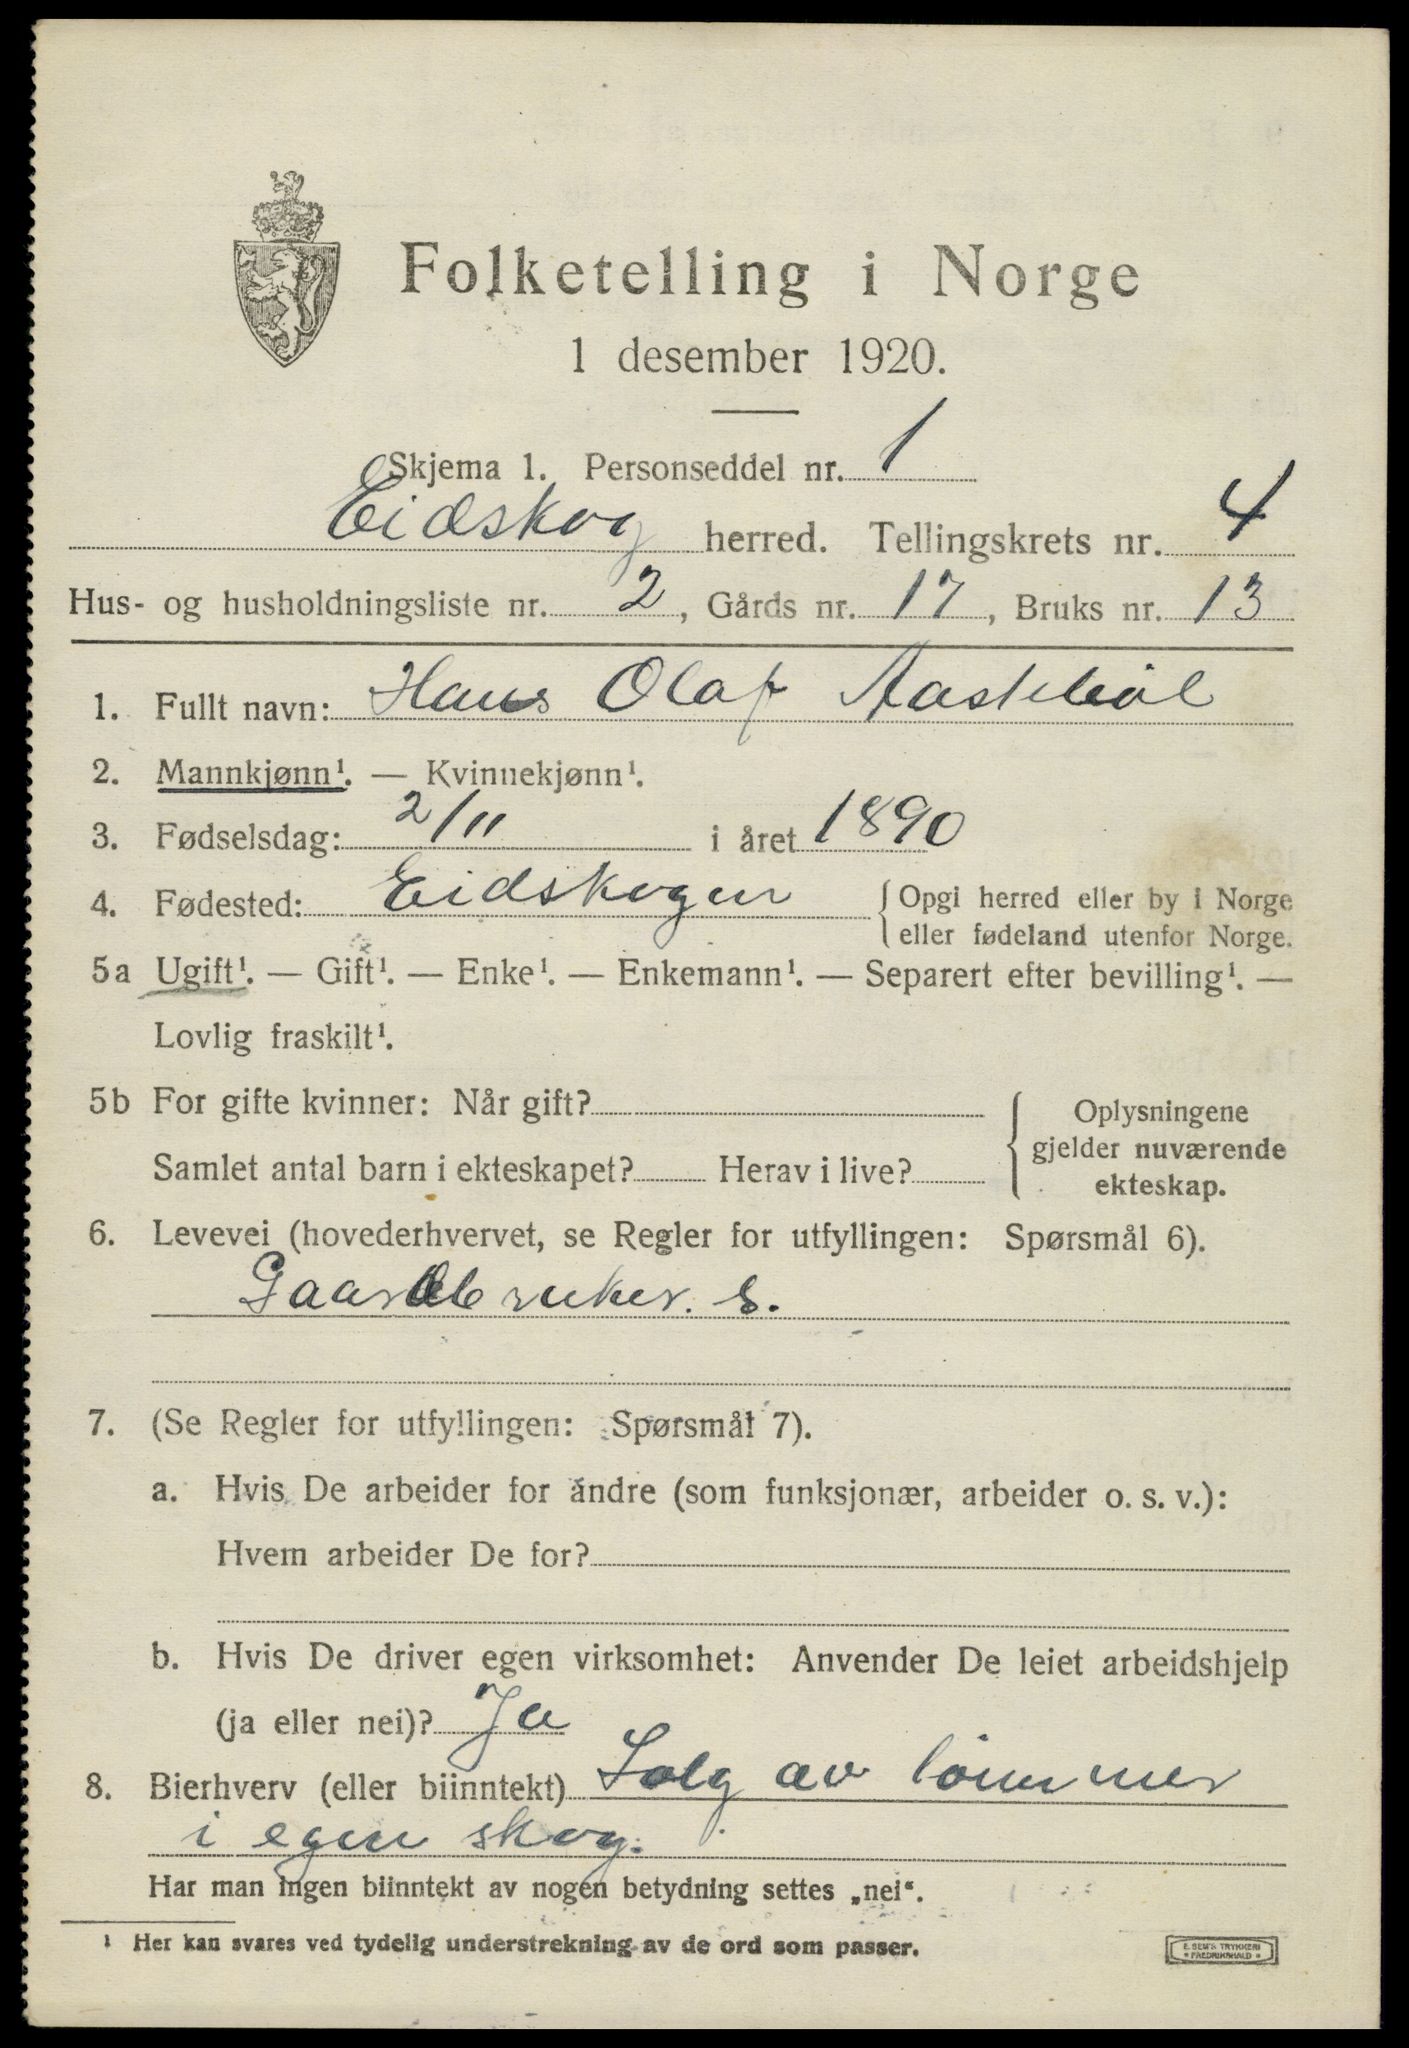 Folketelling i Norge
1 desember 1920.
Skjema 1. Personseddel nr. 1
Eidskog herred. Tellingskrets nr. 4
Hus- og husholdningsliste nr. 2, Gårds nr. 17, Bruks nr. 13
1. Fullt navn: Hans Olaf Aastebøl
2. Mannkjønn¹. — Kvinnekjønn¹.
3. Fødselsdag: 2/11 i året 1890
4. Fødested: Eidskogen {Opgi herred eller by i Norge
eller fødeland utenfor Norge.
5a Ugift¹. — Gift¹. — Enke¹. — Enkemann¹. — Separert efter bevilling¹. —
Lovlig fraskilt¹.
5b For gifte kvinner: Når gift?
Samlet antal barn i ekteskapet? Herav i live?
Oplysningene
gjelder nuværende
ekteskap.
6. Levevei (hovederhvervet, se Regler for utfyllingen: Spørsmål 6).
Gaardbruker. S.
7. (Se Regler for utfyllingen: Spørsmål 7).
a. Hvis De arbeider for andre (som funksjonær, arbeider o. s. v.):
Hvem arbeider De for?
b. Hvis De driver egen virksomhet: Anvender De leiet arbeidshjelp
(ja eller nei)? Ja
8. Bierhverv (eller biinntekt) Solg av tømmer
i egen skog.
Har man ingen biinntekt av nogen betydning settes „nei“.
¹ Her kan svares ved tydelig understrekning av de ord som passer.
E. SEM'S TRYKKERI
FREDRIKSHALD